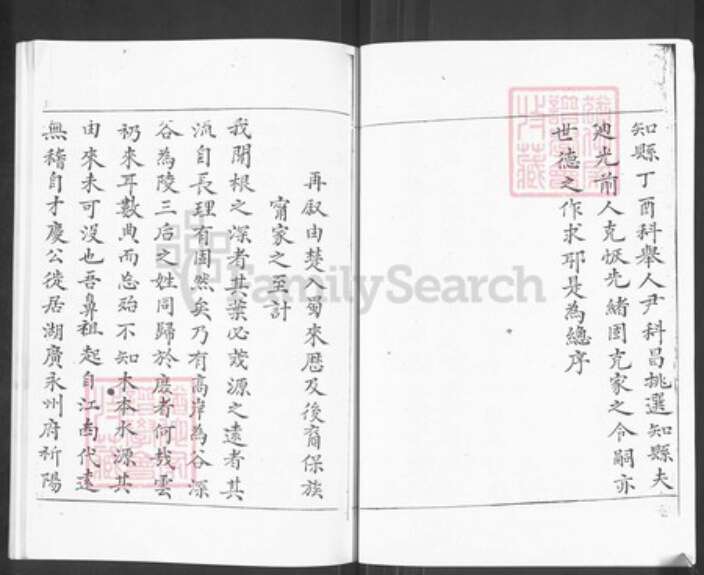 知縣丁酉科舉人尹科昌挑選知縣夫
廸光前人克恢先緒固克家之令嗣亦
世德之作求耶是為總序
再叙由楚入蜀來歷及後裔保族
甯家之至計
我聞根之深者其葉必茂源之遠者其
流自長理有固然矣乃有高岸為谷深
谷為陵三后之姓同歸於庶者何哉雲
礽來耳數典而忘殆不知木本水源其
由來未可沒也吾鼻祖起自江西代遠
無稽自才慶公徙居湖廣永州府祈陽
FamilySearch